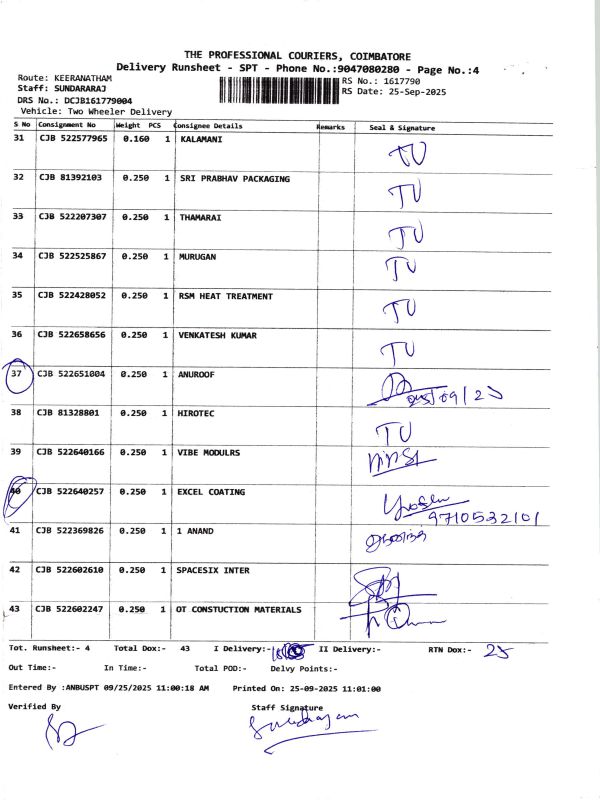 THE PROFESSIONAL COURIERS, COIMBATORE
Delivery Runsheet - SPT - Phone No.:9047080280 - Page No.:4
Route: KEERANATHAM
RS No.: 1617790
Staff: SUNDARARAJ
RS Date: 25-Sep-2025
DRS No.: DCJB161779004
Vehicle: Two Wheeler Delivery
S No Consignment No Weight PCS Consignee Details Remarks Seal & Signature
31 CJB 522577965 0.160 1 KALAMANI TU
32 CJB 81392103 0.250 1 SRI PRABHAV PACKAGING TU
33 CJB 522207307 0.250 1 THAMARAI TU
34 CJB 522525867 0.250 1 MURUGAN TU
35 CJB 522428052 0.250 1 RSM HEAT TREATMENT TU
36 CJB 522658656 0.250 1 VENKATESH KUMAR TU
37 CJB 522651004 0.250 1 ANUROOF
38 CJB 81328801 0.250 1 HIROTEC TU
39 CJB 522640166 0.250 1 VIBE MODULRS
40 CJB 522640257 0.250 1 EXCEL COATING
9710532101
41 CJB 522369826 0.250 1 1 ANAND
42 CJB 522602610 0.250 1 SPACESIX INTER
43 CJB 522602247 0.250 1 OT CONSTUCTION MATERIALS
Tot. Runsheet:- 4 Total Dox:- 43 I Delivery:- II Delivery:- RTN Dox:- 25
Out Time:- In Time:- Total POD:- Delvy Points:-
Entered By :ANBUSPT 09/25/2025 11:00:18 AM Printed On: 25-09-2025 11:01:00
Verified By Staff Signature